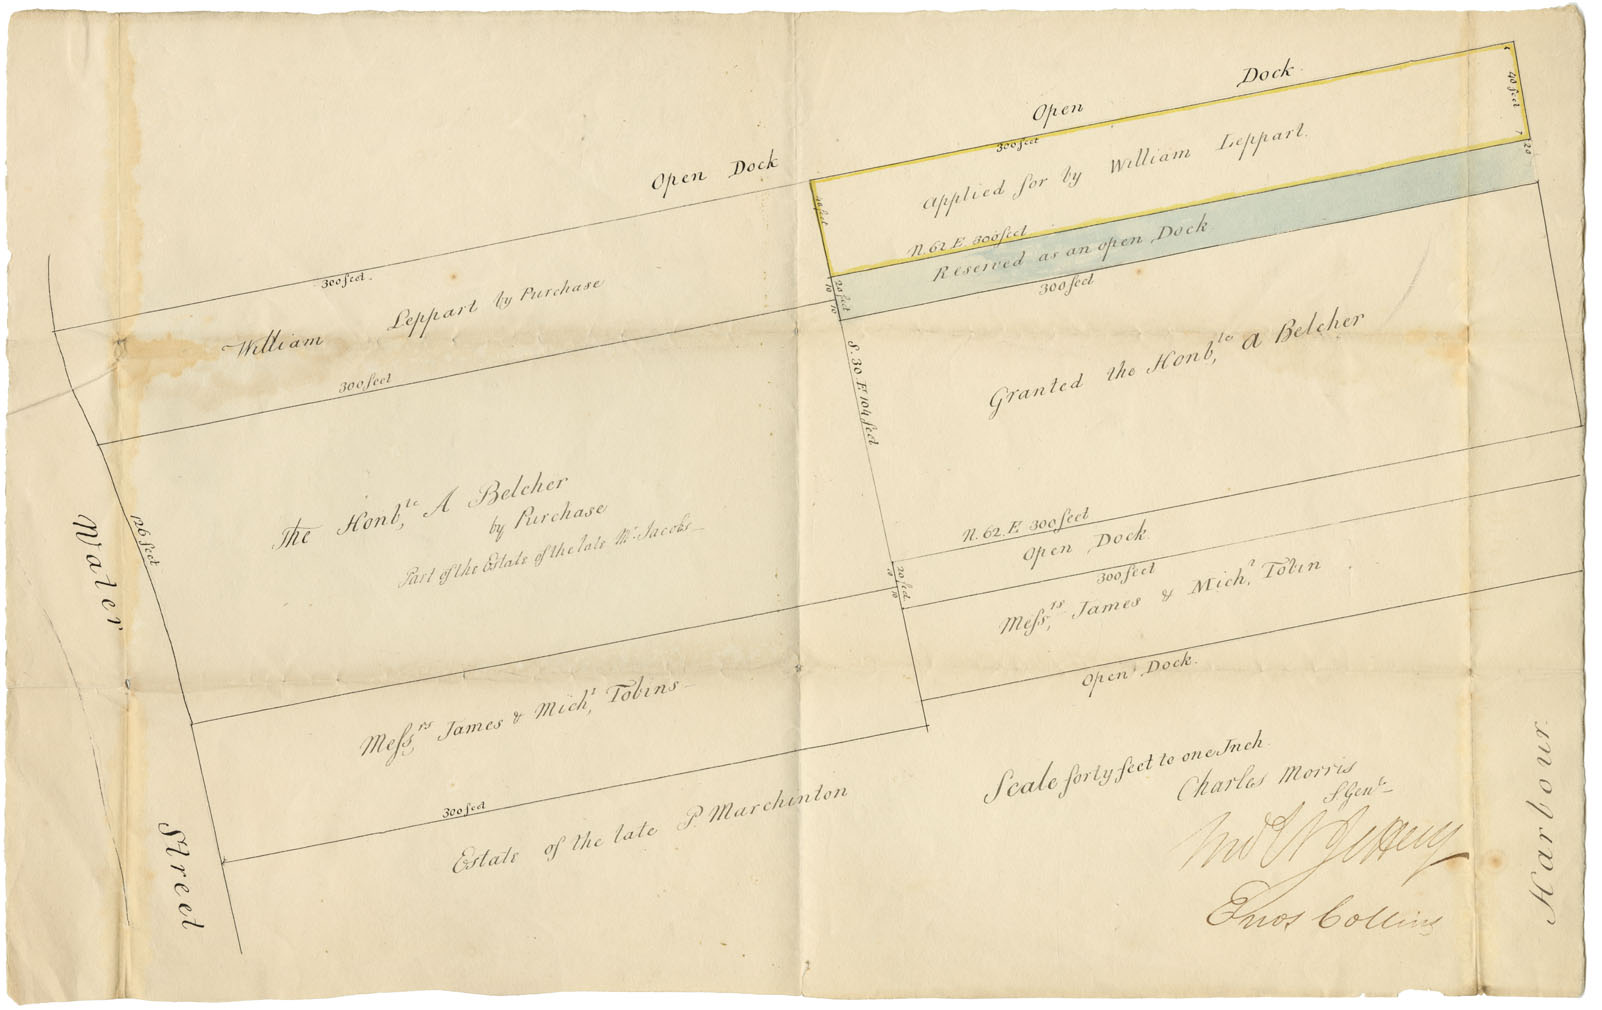 Open Dock
Open Dock
300 feet
40 feet
Applied for by William Leppart.
40 feet
N. 62 E. 300 feet
20
Reserved as an open Dock
300 feet
20 feet
10 10
300 feet.
William Leppart by Purchase
300 feet
Granted the Honb,le A Belcher
S. 30 E 104 feet
The Honb,le A Belcher
by Purchase
Part of the Estate of the late Mr Jacobs
126 feet
N. 62. E. 300 feet
Open Dock.
20 feet
10 10
300 feet
Mess,rs James & Mich,l Tobin
Open Dock.
Mess,rs James & Mich,l Tobins
300 feet
Estate of the late P. Marchinton
Water Street
Harbour.
Scale forty feet to one Inch.
Charles Morris
S Genl
Enos Collins